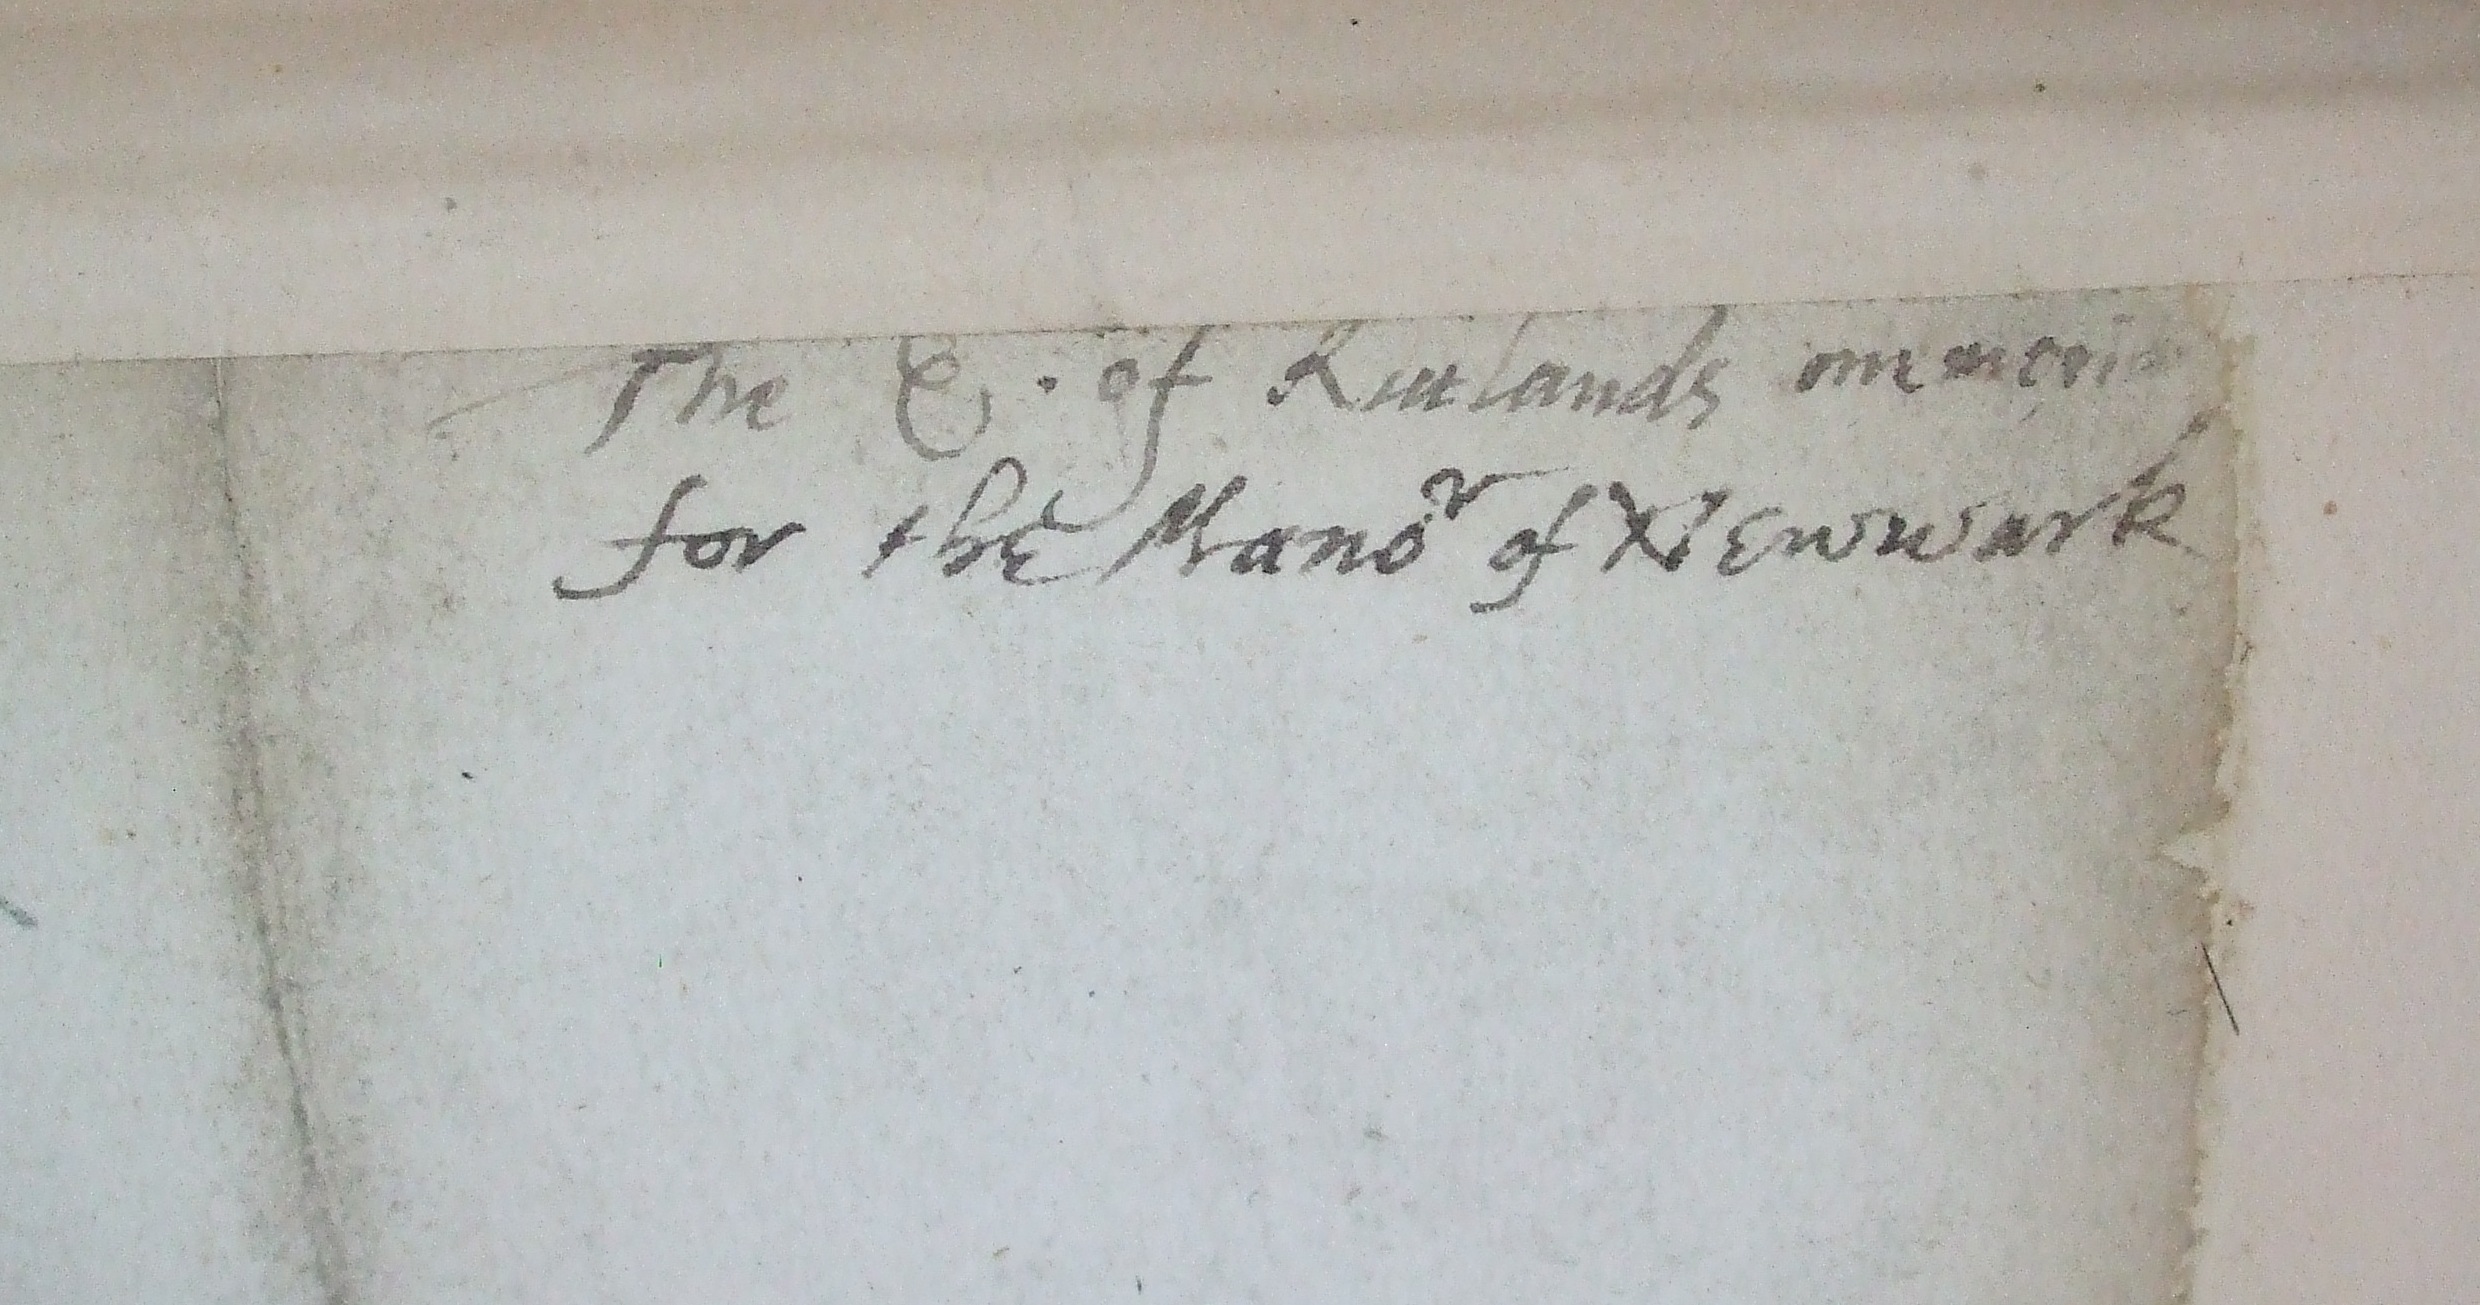 The E. of Rutlands
for the Manor of Newwark